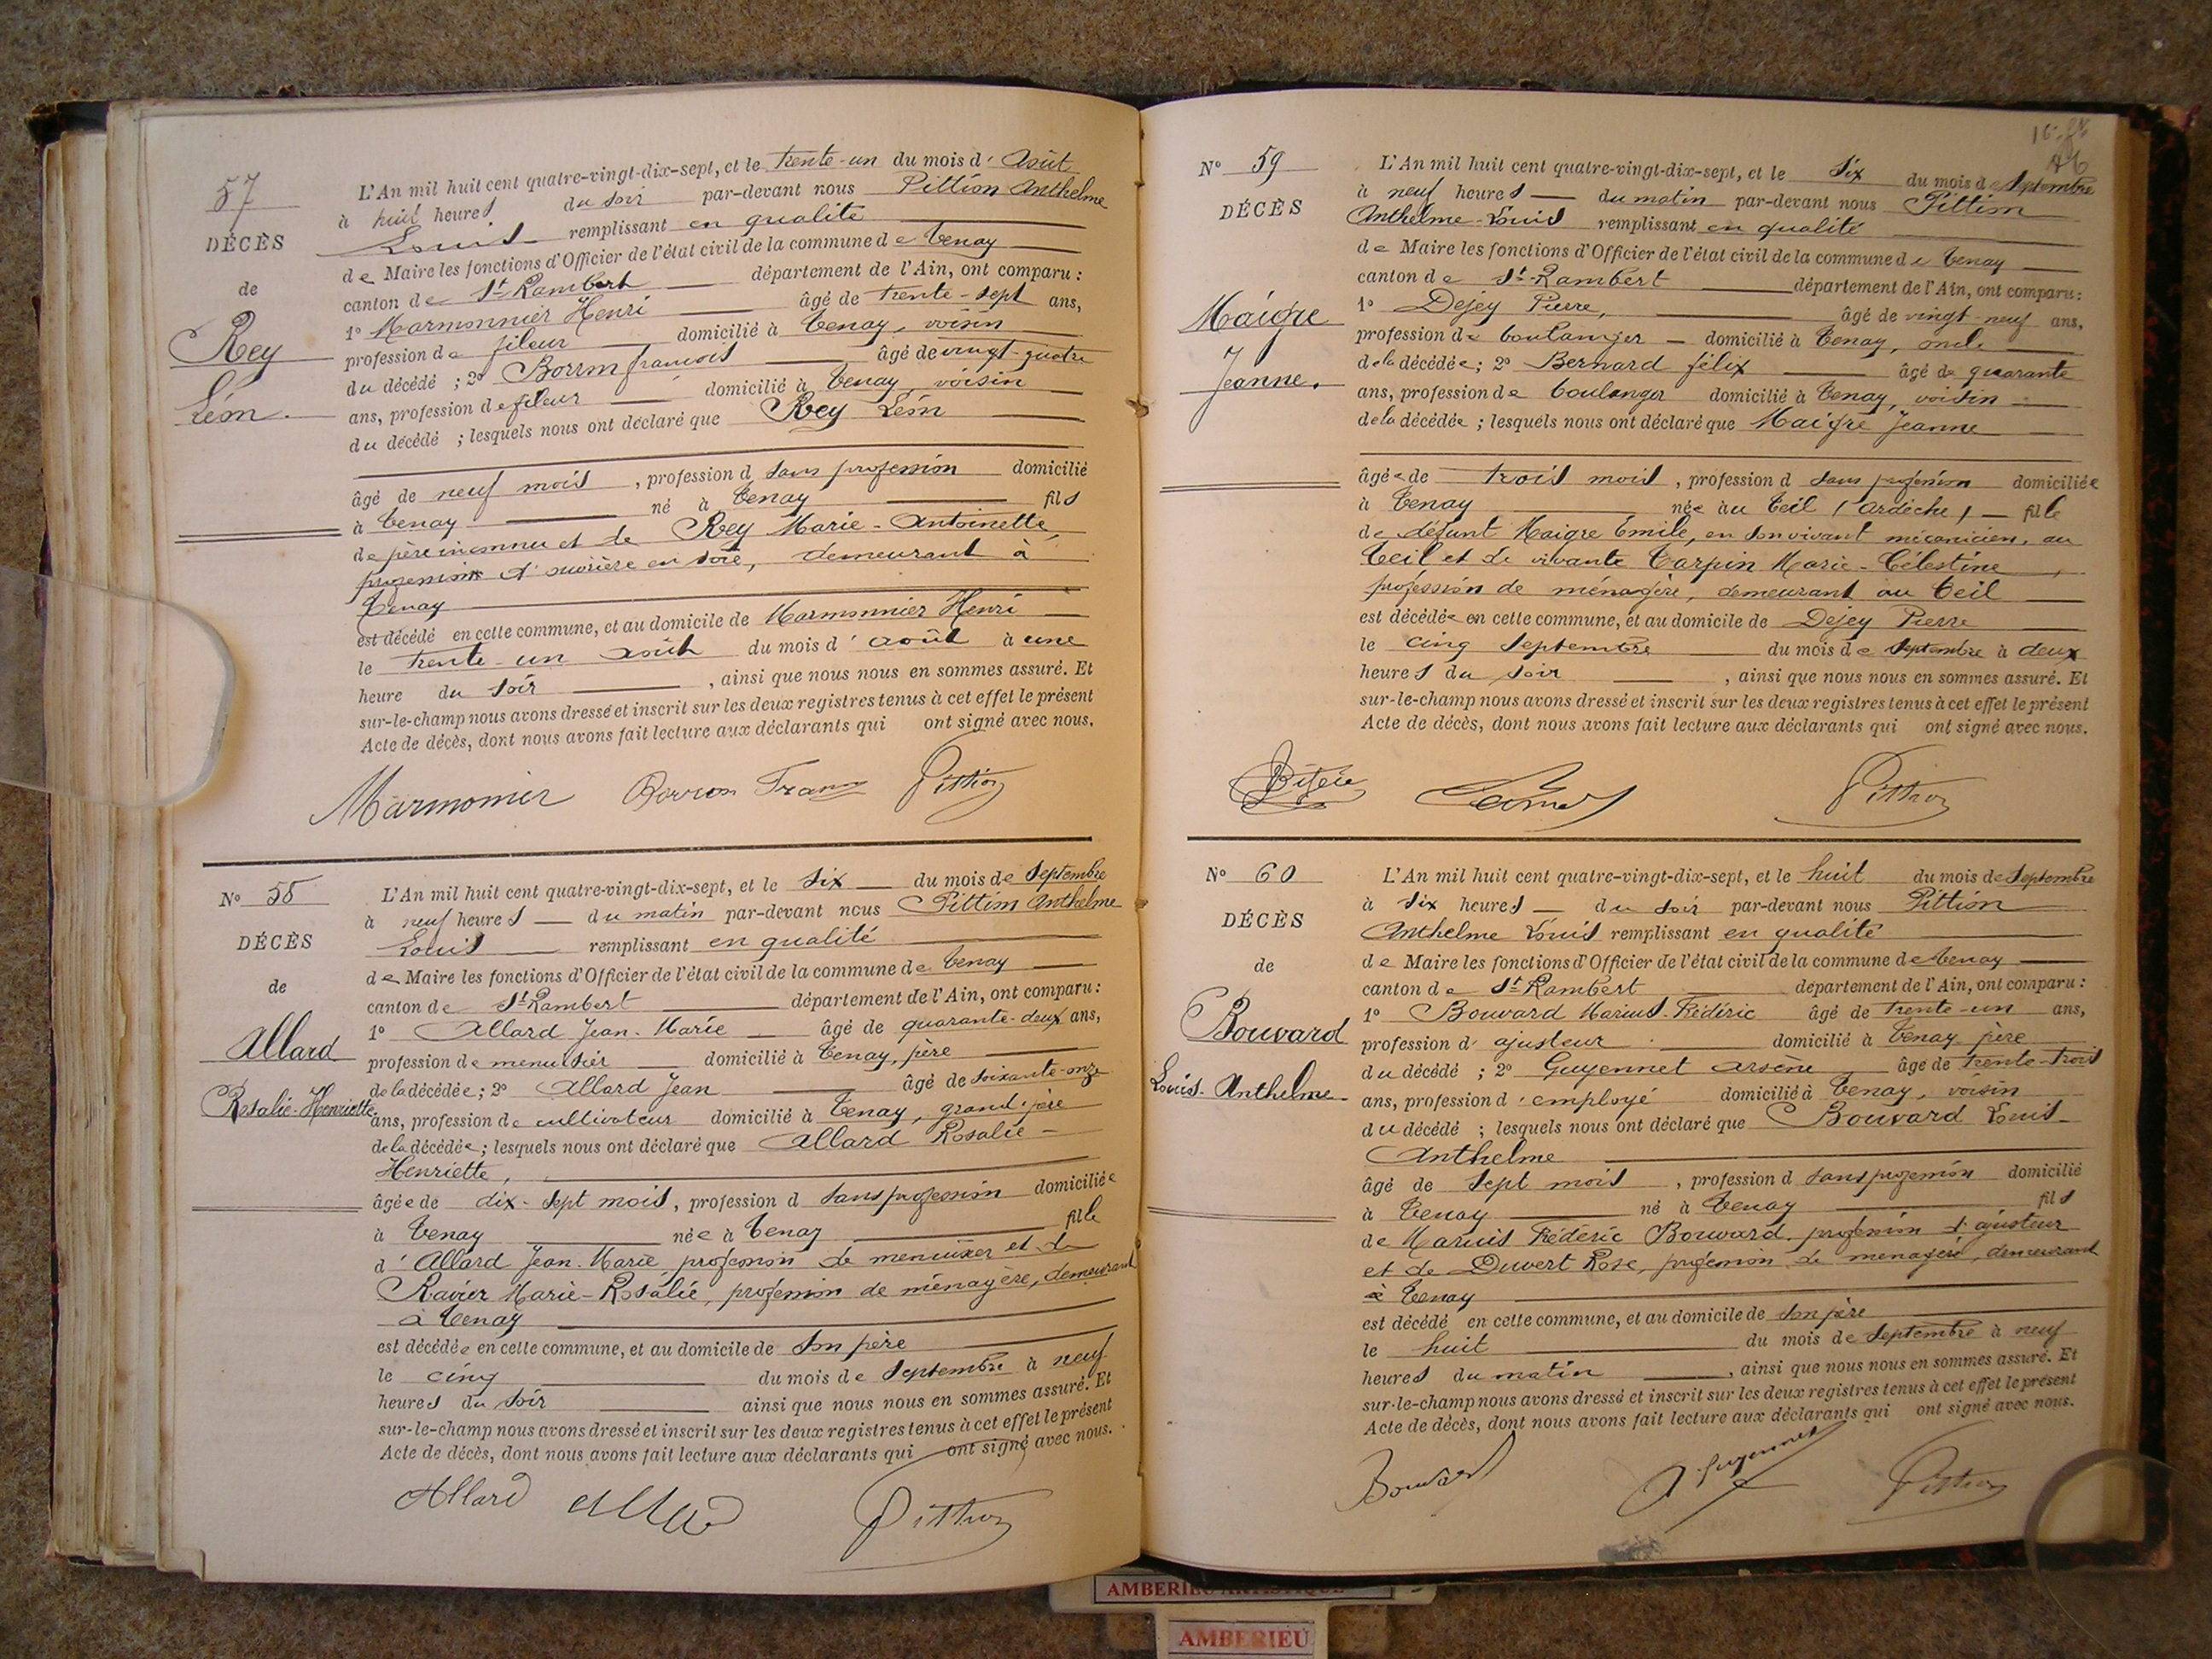 57
DÉCÈS
de
Rey
Léon.
L'An mil huit cent quatre-vingt-dix-sept, et le trente-un du mois d'Août
à huit heures du soir par-devant nous Pittion Anthelme
Louis remplissant en qualité
de Maire les fonctions d'Officier de l'état civil de la commune de Tenay
canton de St-Rambert département de l'Ain, ont comparu :
1° Marmonnier Henri âgé de trente-sept ans,
profession de fileur domicilié à Tenay, voisin
du décédé ; 2° Borron françois âgé de vingt-quatre
ans, profession de fileur domicilié à Tenay, voisin
du décédé ; lesquels nous ont déclaré que Rey Léon
âgé de neuf mois, profession d sans profession domicilié
à Tenay né à Tenay fils
de père inconnu et de Rey Marie-Antoinette,
profession d'ouvrière en soie, demeurant à
Tenay
est décédé en cette commune, et au domicile de Marmonnier Henri
le trente-un août du mois d'août à une
heure du soir, ainsi que nous nous en sommes assuré. Et
sur-le-champ nous avons dressé et inscrit sur les deux registres tenus à cet effet le présent
Acte de décès, dont nous avons fait lecture aux déclarants qui ont signé avec nous.
Marmonier Borron Pittion
N° 58
DÉCÈS
de
Allard
Rosalie-Henriette
L'An mil huit cent quatre-vingt-dix-sept, et le six du mois de Septembre
à neuf heures du matin par-devant nous Pittion Anthelme
Louis remplissant en qualité
de Maire les fonctions d'Officier de l'état civil de la commune de Tenay
canton de St-Rambert département de l'Ain, ont comparu :
1° Allard Jean-Marie âgé de quarante-deux ans,
profession de menuisier domicilié à Tenay, père
de la décédée ; 2° Allard Jean âgé de soixante-onze
ans, profession de cultivateur domicilié à Tenay, grand-père
de la décédée ; lesquels nous ont déclaré que Allard Rosalie-
Henriette,
âgée de dix-sept mois, profession d sans profession domiciliée
à Tenay née à Tenay fille
d'Allard Jean-Marie, profession de menuisier et de
Ravier Marie-Rosalie, profession de ménagère, demeurant
à Tenay
est décédée en cette commune, et au domicile de son père
le cinq du mois de Septembre à neuf
heures du soir ainsi que nous nous en sommes assuré. Et
sur-le-champ nous avons dressé et inscrit sur les deux registres tenus à cet effet le présent
Acte de décès, dont nous avons fait lecture aux déclarants qui ont signé avec nous.
Allard Allard Pittion
46
N° 59
DÉCÈS
Maigre
Jeanne.
L'An mil huit cent quatre-vingt-dix-sept, et le six du mois de Septembre
à neuf heures du matin par-devant nous Pittion
Anthelme-Louis remplissant en qualité
de Maire les fonctions d'Officier de l'état civil de la commune de Tenay
canton de St-Rambert département de l'Ain, ont comparu :
1° Dejey Pierre, âgé de vingt-neuf ans,
profession de boulanger domicilié à Tenay, oncle
de la décédée ; 2° Bernard félix âgé de quarante
ans, profession de boulanger domicilié à Tenay, voisin
de la décédée ; lesquels nous ont déclaré que Maigre Jeanne
âgée de trois mois, profession d sans profession domiciliée
à Tenay née au Teil (Ardèche) fille
de défunt Maigre Emile, en son vivant mécanicien, au
Teil et de vivante Tarpin Marie-Célestine,
profession de ménagère, demeurant au Teil
est décédée en cette commune, et au domicile de Dejey Pierre
le cinq Septembre du mois de Septembre à deux
heures du soir, ainsi que nous nous en sommes assuré. Et
sur-le-champ nous avons dressé et inscrit sur les deux registres tenus à cet effet le présent
Acte de décès, dont nous avons fait lecture aux déclarants qui ont signé avec nous.
Pittion
N° 60
DÉCÈS
de
Bouvard
Louis-Anthelme
L'An mil huit cent quatre-vingt-dix-sept, et le huit du mois de Septembre
à six heures du soir par-devant nous Pittion
Anthelme Louis remplissant en qualité
de Maire les fonctions d'Officier de l'état civil de la commune de Tenay
canton de St-Rambert département de l'Ain, ont comparu :
1° Bouvard Marius-Frédéric âgé de trente-un ans,
profession d'ajusteur domicilié à Tenay père
du décédé ; 2° Guyennet arsène âgé de trente-trois
ans, profession d'employé domicilié à Tenay, voisin
du décédé ; lesquels nous ont déclaré que Bouvard Louis-
Anthelme
âgé de sept mois, profession d sans profession domicilié
à Tenay né à Tenay fils
de Marius Frédéric Bouvard, profession d'ajusteur
et de Duvert Rose, profession de ménagère, demeurant
à Tenay
est décédé en cette commune, et au domicile de son père
le huit du mois de Septembre à neuf
heures du matin, ainsi que nous nous en sommes assuré. Et
sur-le-champ nous avons dressé et inscrit sur les deux registres tenus à cet effet le présent
Acte de décès, dont nous avons fait lecture aux déclarants qui ont signé avec nous.
Bouvard A. Guyennet Pittion
AMBERIEU ARTISTIQUE
AMBERIEU